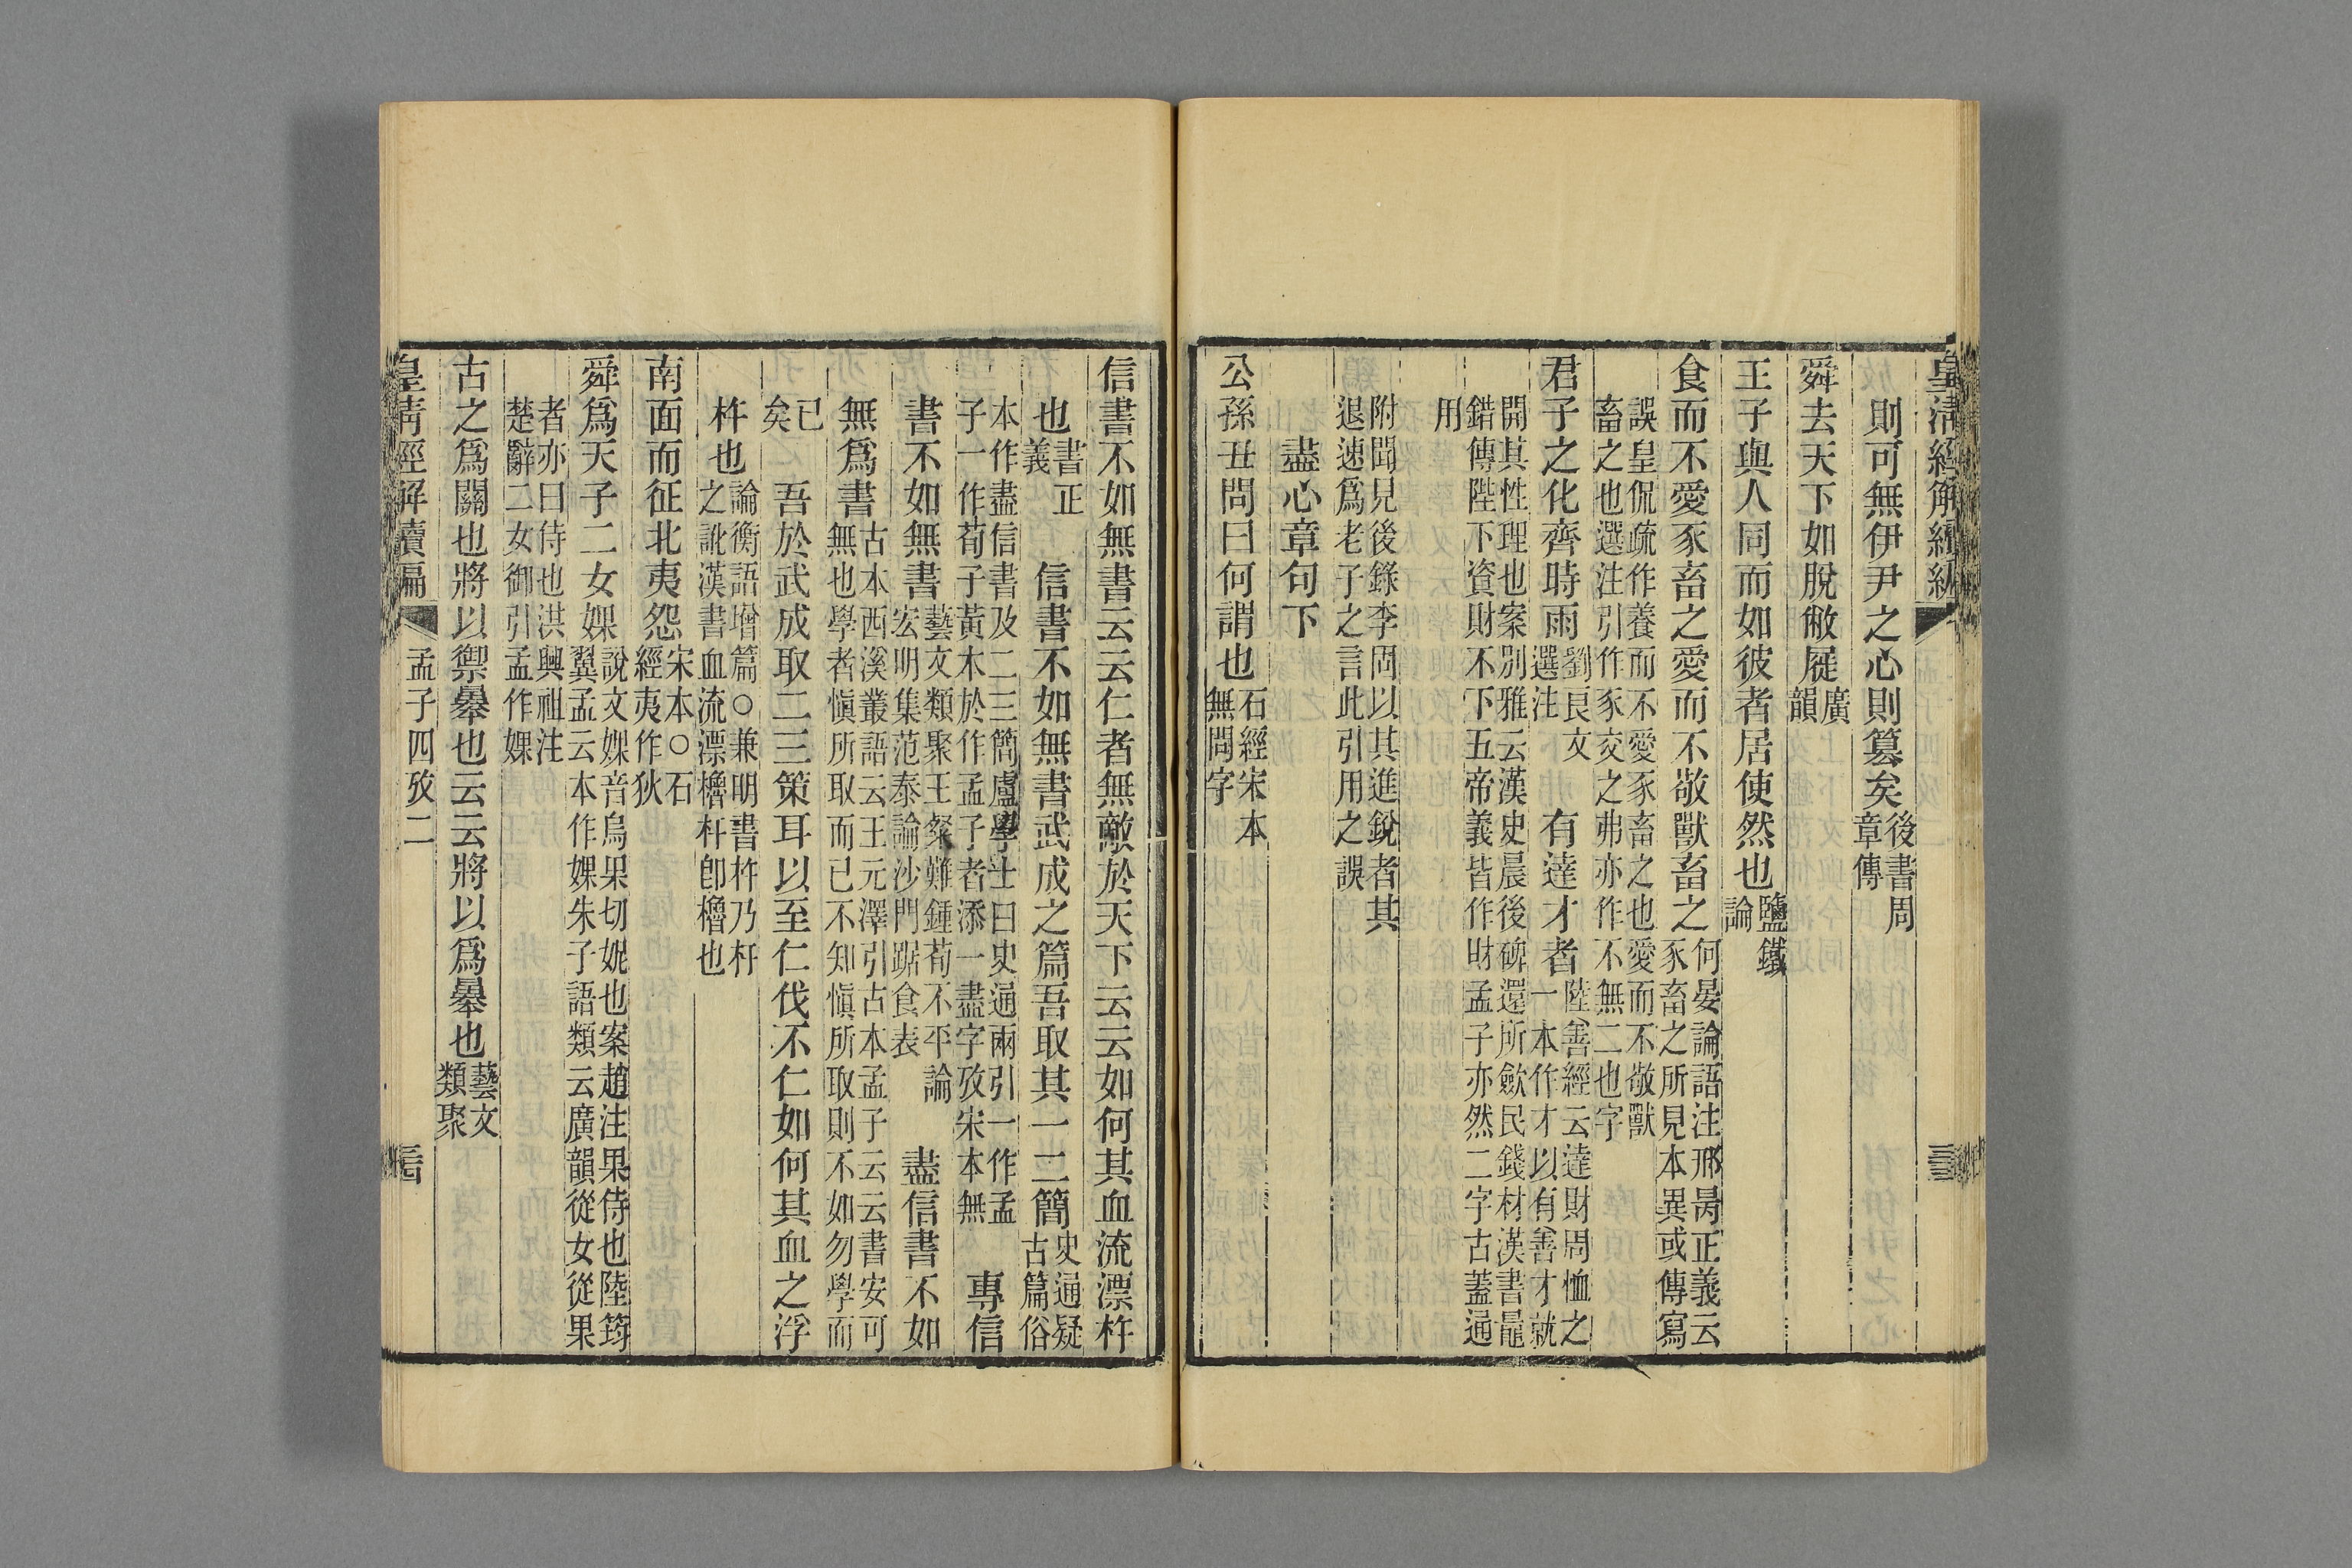 皇淸經解續編
則可無伊尹之心則簒矣後書周章傳
舜去天下如脫敝屣廣韻
王子與人同而如彼者居使然也鹽鐵論
食而不愛豕畜之愛而不敬獸畜之何晏論語注邢昺正義云豕畜之所見本異或傳寫
誤皇侃疏作養而不愛豕畜之也愛而不敬獸畜之也選注引作豕交之弗亦作不無二也字
君子之化齊時雨劉良文選注　有達才者陸善經云達財周恤之一本作才以有善才就
開其性理也案別雅云漢史晨後碑還所斂民錢材漢書鼂錯傳陛下資財不下五帝義皆作財孟子亦然二字古蓋通
用
附聞見後錄李固以其進銳者其退速爲老子之言此引用之誤
盡心章句下
公孫丑問曰何謂也石經宋本無問字
信書不如無書云云仁者無敵於天下云云如何其血流漂杵
也書正義　信書不如無書武成之篇吾取其一二簡史通疑古篇俗
本作盡信書及二三簡盧學士曰史通兩引一作孟子一作荀子黃本於作孟子者添一盡字攷宋本無　專信
書不如無書藝文類聚王粲難鍾荀不平論宏明集范泰論沙門踞食表　盡信書不如
無爲書古本西溪叢語云王元澤引古本孟子云云書安可無也學者愼所取而已不知愼所取則不如勿學而
已矣　吾於武成取二三策耳以至仁伐不仁如何其血之浮
杵也論衡語增篇○兼明書杵乃杆之訛漢書血流漂櫓杆卽櫓也
南面而征北夷怨宋本○石經夷作狄
舜爲天子二女婐說文婐音烏果切妮也案趙注果侍也陸筠翼孟云本作婐朱子語類云廣韻從女從果
者亦曰侍也洪興祖注楚辭二女御引孟作婐
古之爲關也將以禦㬥也云云將以爲㬥也藝文類聚
皇淸經解續編　孟子四攷二